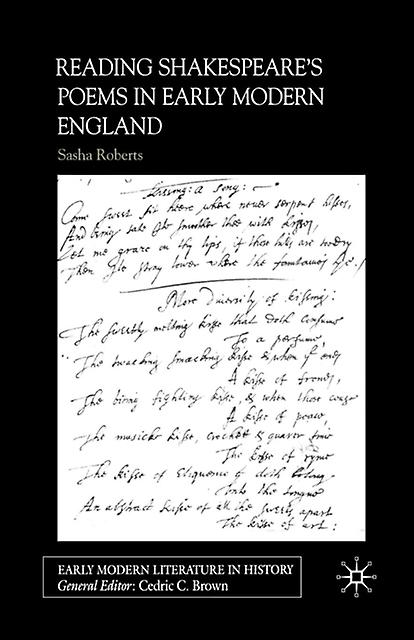 READING SHAKESPEARE'S
POEMS IN EARLY MODERN
ENGLAND
Sasha Roberts
Kissing: a song:
Come sweet sit heere where never serpent hisses,
And being sate Ile smoother thee with kisses,
Let me graze on thy lips, if those hills are
Then Ile stray lower where the fountaines lye.
More Diversity of kissing:
The sweetly melting kisse that doth consume
To a perfume,
The smacking kisse & when it ends
A kisse of frends,
The kisse, & when those cease
A kisse of peace,
The musicke kisse, crochet & quaver time
The kisse of ryme
The kisse of Eloquence doth belong
Unto the tongue
An abstract kisse of all the sweets apart
The kisse of art:
EARLY MODERN LITERATURE IN HISTORY
General Editor: Cedric C. Brown